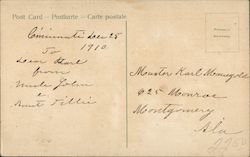 Post Card – Postkarte – Carte postale
Cincinnati Dec 25
1910
To
Dear Karl
from
Uncle John
&
Aunt Tillie
Master Karl
625 Monroe
Montgomery
Ala